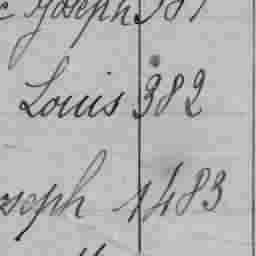 Joseph 381
Louis 382
oseph 1483